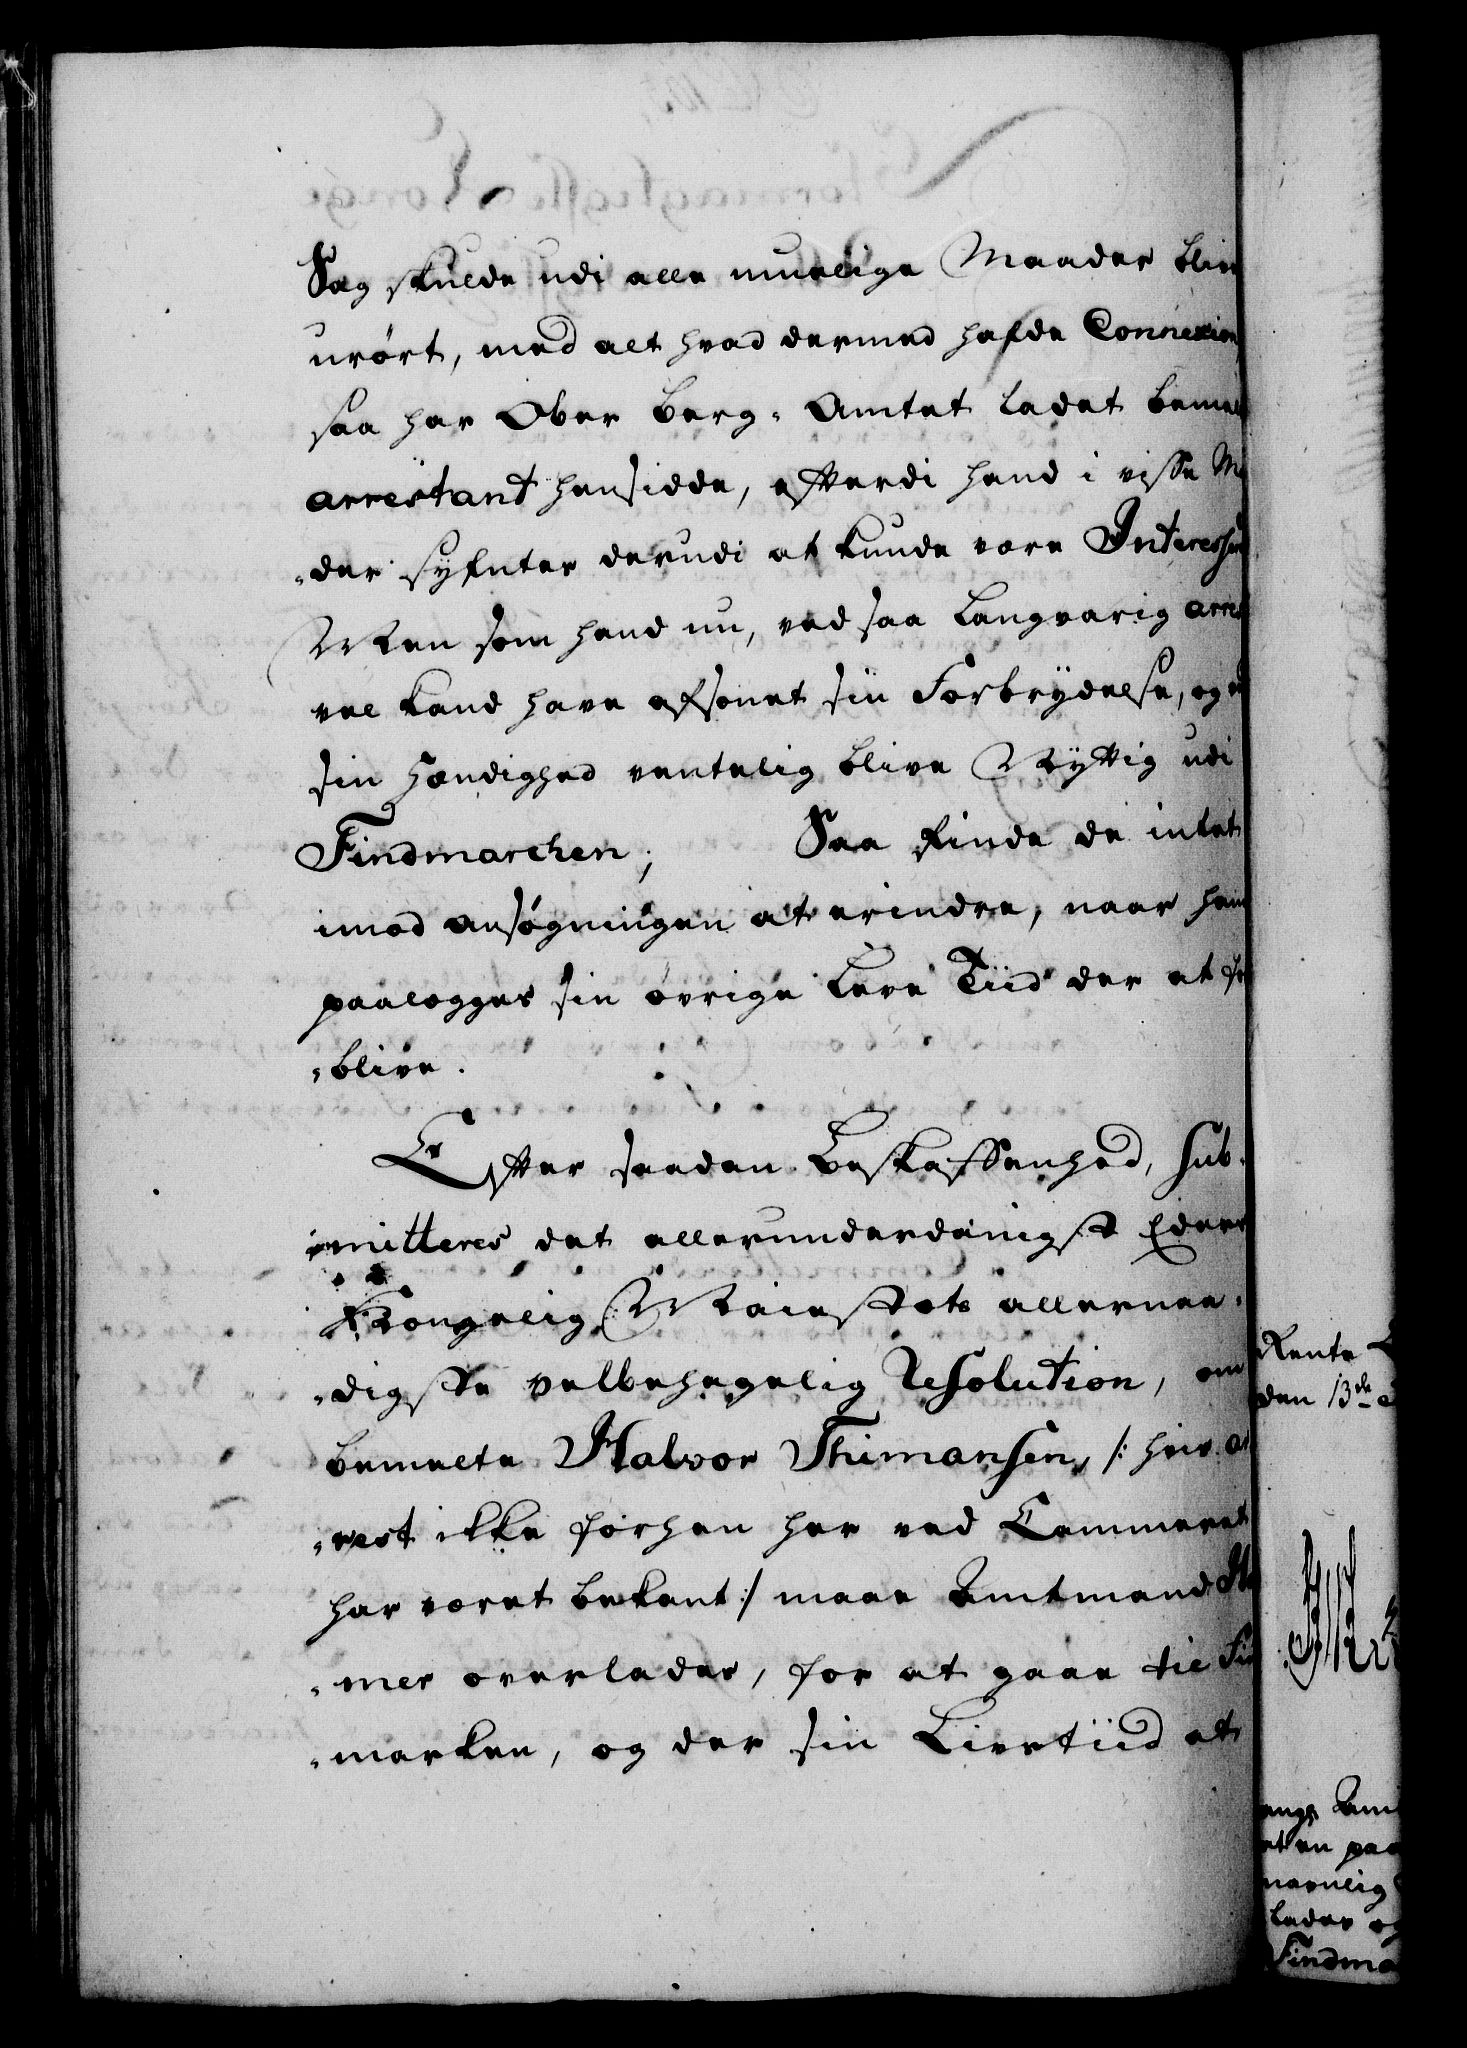 Sag skulde udi alle muelige Maader blive
urørt, med alt hvad dermed hafde Connexion,
saa har Ober Berg-Amtet ladet bemelte
arrestant hensidde, efterdi hand i visse Maa
-der syfntes derudi at kunde være Interesseret
Men som hand nu, ved saa langvarig arrest
vel kand have afsonet sin Forbrydelse, og ved
sin Hændighed ventelig blive Nyttig udi
Findmarchen; Saa finde de intet
imod ansøgningen at erindre, naar ham
paalegges sin øvrige Leve Tiid der at for
-blive.
Efter saadan Beskaffenhed, sub-
-mitteres det allerunderdanigst Eders
Kongelig Maiestæts allernaa-
-digste velbehagelig Resolution, om
bemelte Halvor Thimansen, /: hvis ar
-rest ikke forhen her ved Cammeret
har været bekant :/ maae Amtmand
-mer overlades, for at gaae til Fin
-marken, og der sin Livs tiid at
Rente
den 13de
Amt
en paa
navnlig
lades og
Findma